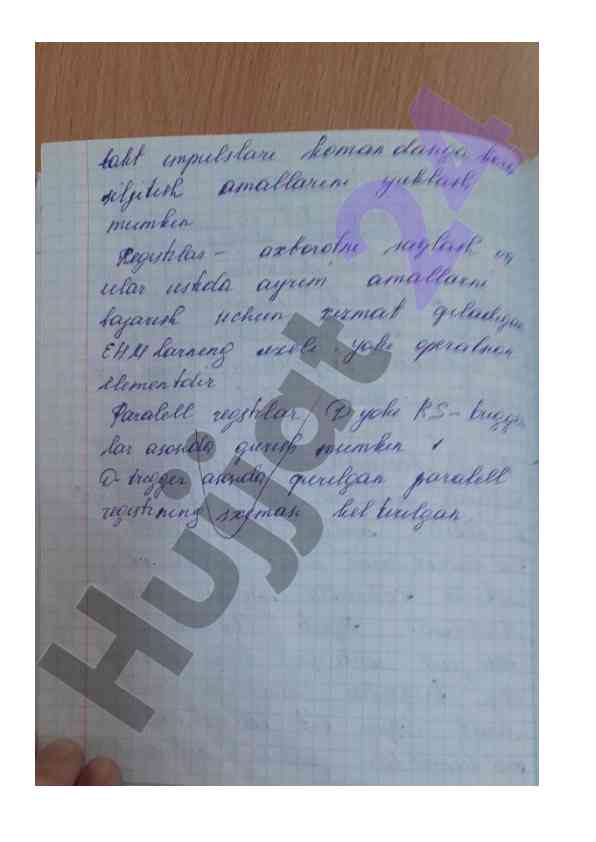 takt impulslari komandanga
siljitish amallarini yuklash
mumkin
Registrlar - axborotni saqlash
ular ustida ayrim amallarni
bajarish uchun xizmat qiladigan
EHM larning uzeli yoki operatsion
elementdir
Paralell registrlar D yoki RS-trigger
lar asosida qurish mumkin
D-trigger asosida qurilgan paralell
registrning sxemasi keltirilgan
Hujjat 24